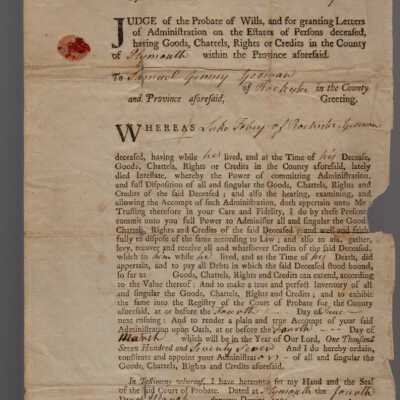 JUDGE of the Probate of Wills, and for granting Letters
of Administration on the Estates of Persons deceased,
having Goods, Chattels, Rights or Credits in the County
of Plymouth within the Province aforesaid.
To Samuel Yeoman
of Rochester in the County
and Province aforesaid, Greeting.
WHEREAS of Rochester Yeoman
deceased, having while he lived, and at the Time of his Decease,
Goods, Chattels, Rights or Credits in the County aforesaid, lately
died Intestate, whereby the Power of committing Administration,
and full Disposition of all and singular the Goods, Chattels, Rights and
Credits of the said Deceased; and also the hearing, examining, and
allowing the Accompt of such Administration, doth appertain unto Me
Trusting therefore in your Care and Fidelity, I do by these Presents
commit unto you full Power to Administer all and singular the Goods
Chattels, Rights and Credits of the said Deceased; and well and faith-
fully to dispose of the same according to Law; and also to ask, gather,
levy, recover and receive all and whatsoever Credits of the said Deceased,
which to him while he lived, and at the Time of his Death, did
appertain, and to pay all Debts in which the said Deceased stood bound,
so far as Goods, Chattels, Rights and Credits can extend, according
to the Value thereof: And to make a true and perfect Inventory of all
and singular the Goods, Chattels, Rights and Credits; and to exhibit
the same into the Registry of the Court of Probate for the County
aforesaid, at or before the Fourth Day of June
next ensuing: And to render a plain and true Accompt of your said
Administration upon Oath, at or before the Fourth Day of
March which will be in the Year of Our Lord, One Thousand
Seven Hundred and Seventy And I do hereby ordain,
constitute and appoint your Administrator of all and singular the
Goods, Chattels, Rights and Credits aforesaid.
In Testimony whereof, I have hereunto set my Hand and the Seal
of the said Court of Probate. Dated at Plymouth the fourth
Day of March